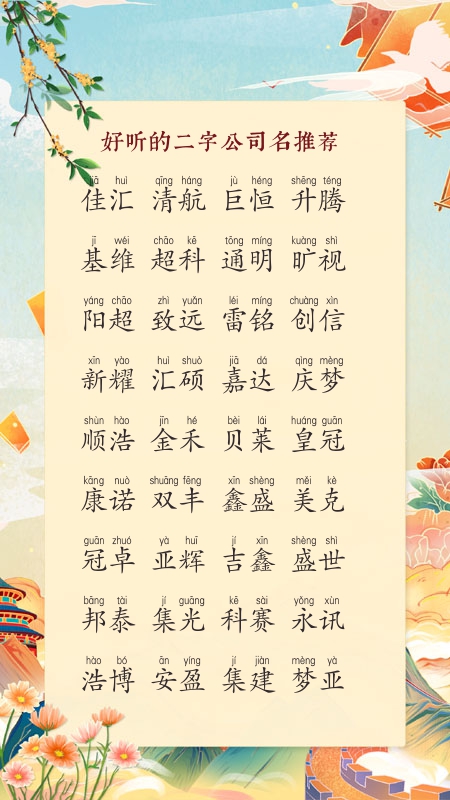 好听的二字公司名推荐
jiā huì qīng háng jù héng shēng téng
佳汇 清航 巨恒 升腾
jī wéi chāo kē tōng míng kuàng shì
基维 超科 通明 旷视
yáng chāo zhì yuǎn léi míng chuàng xìn
阳超 致远 雷铭 创信
xīn yào huì shuò jiā dá qìng mèng
新耀 汇硕 嘉达 庆梦
shùn hào jīn hé bèi lái huáng guān
顺浩 金禾 贝莱 皇冠
kāng nuò shuāng fēng xīn shèng měi kè
康诺 双丰 鑫盛 美克
guān zhuó yà huī jí xīn shèng shì
冠卓 亚辉 吉鑫 盛世
bāng tài jí guāng kē sài yǒng xùn
邦泰 集光 科赛 永讯
hào bó ān yíng jí jiàn mèng yà
浩博 安盈 集建 梦亚